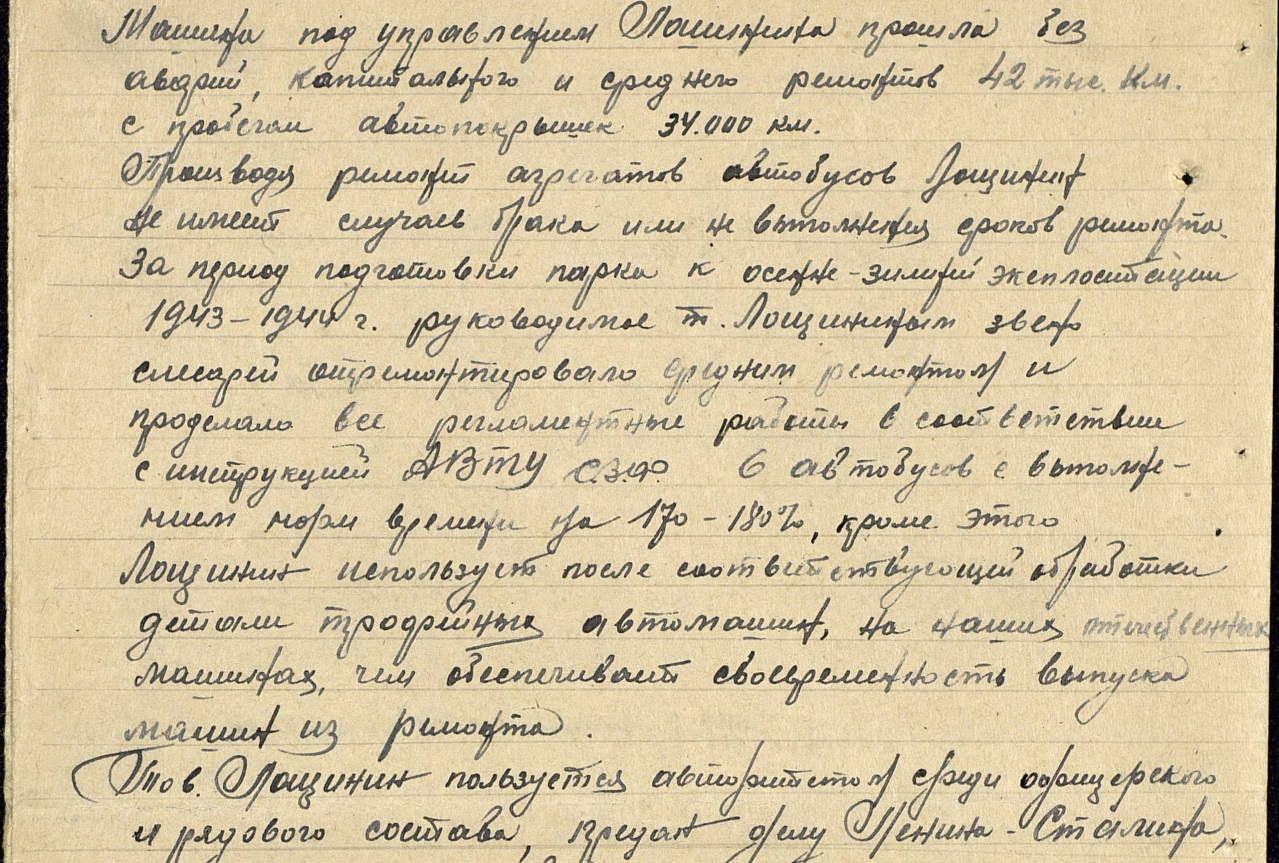 Машина под управлением Лощинина прошла без
аварий, капитального и среднего ремонтов 42 тыс. км.
с пробегом автопокрышек 34.000 км.
Производя ремонт агрегатов автобусов Лощинин
не имеет случаев брака или не выполнения сроков ремонта.
За период подготовки парка к осенне-зимней эксплоатации
1943-1944 г. руководимое т. Лощининым звено
слесарей отремонтировало средним ремонтом и
проделало все регламентные работы в соответствии
с инструкцией АВТУ С.З.Ф. 6 автобусов с выполне-
нием норм времени на 170-180%, кроме этого
Лощинин использует после соответствующей обработки
детали трофейных автомашин, на наших отечественных
машинах, чем обеспечивает своевременность выпуска
машин из ремонта.
Тов. Лощинин пользуется авторитетом среди офицерского
и рядового состава, предан делу Ленина-Сталина,